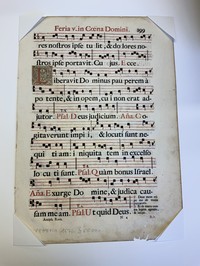 Feria v. in Cœna Domini. 299
res nostros ipse tu lit, & do lores no-
stros ipse portavit. Cu jus. Ecce.
Liberavit Do mi nus pau perem à
po tente, & in opom, cu i non erat ad-
jutor. Psal. Deus judicium. Aña. Co-
gitaverunt impi i, & locuti sunt ne-
qui ti am: iniquita tem in excelso
lo cu ti sunt. Psal. Quàm bonus Israel.
Aña. Exurge Do mine, & judica cau-
sam me am. Psal. Ut quid Deus.